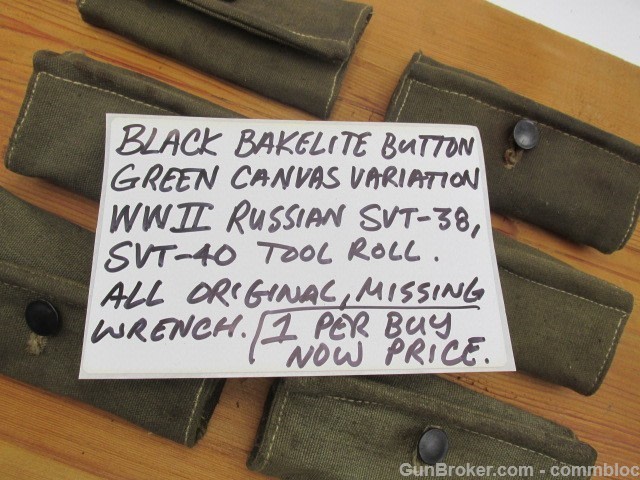 BLACK BAKELITE BUTTON
GREEN CANVAS VARIATION
WWII RUSSIAN SVT-38,
SVT-40 TOOL ROLL.
ALL ORIGINAL, MISSING
WRENCH. 1 PER BUY
NOW PRICE.
GunBroker.com - commbloc